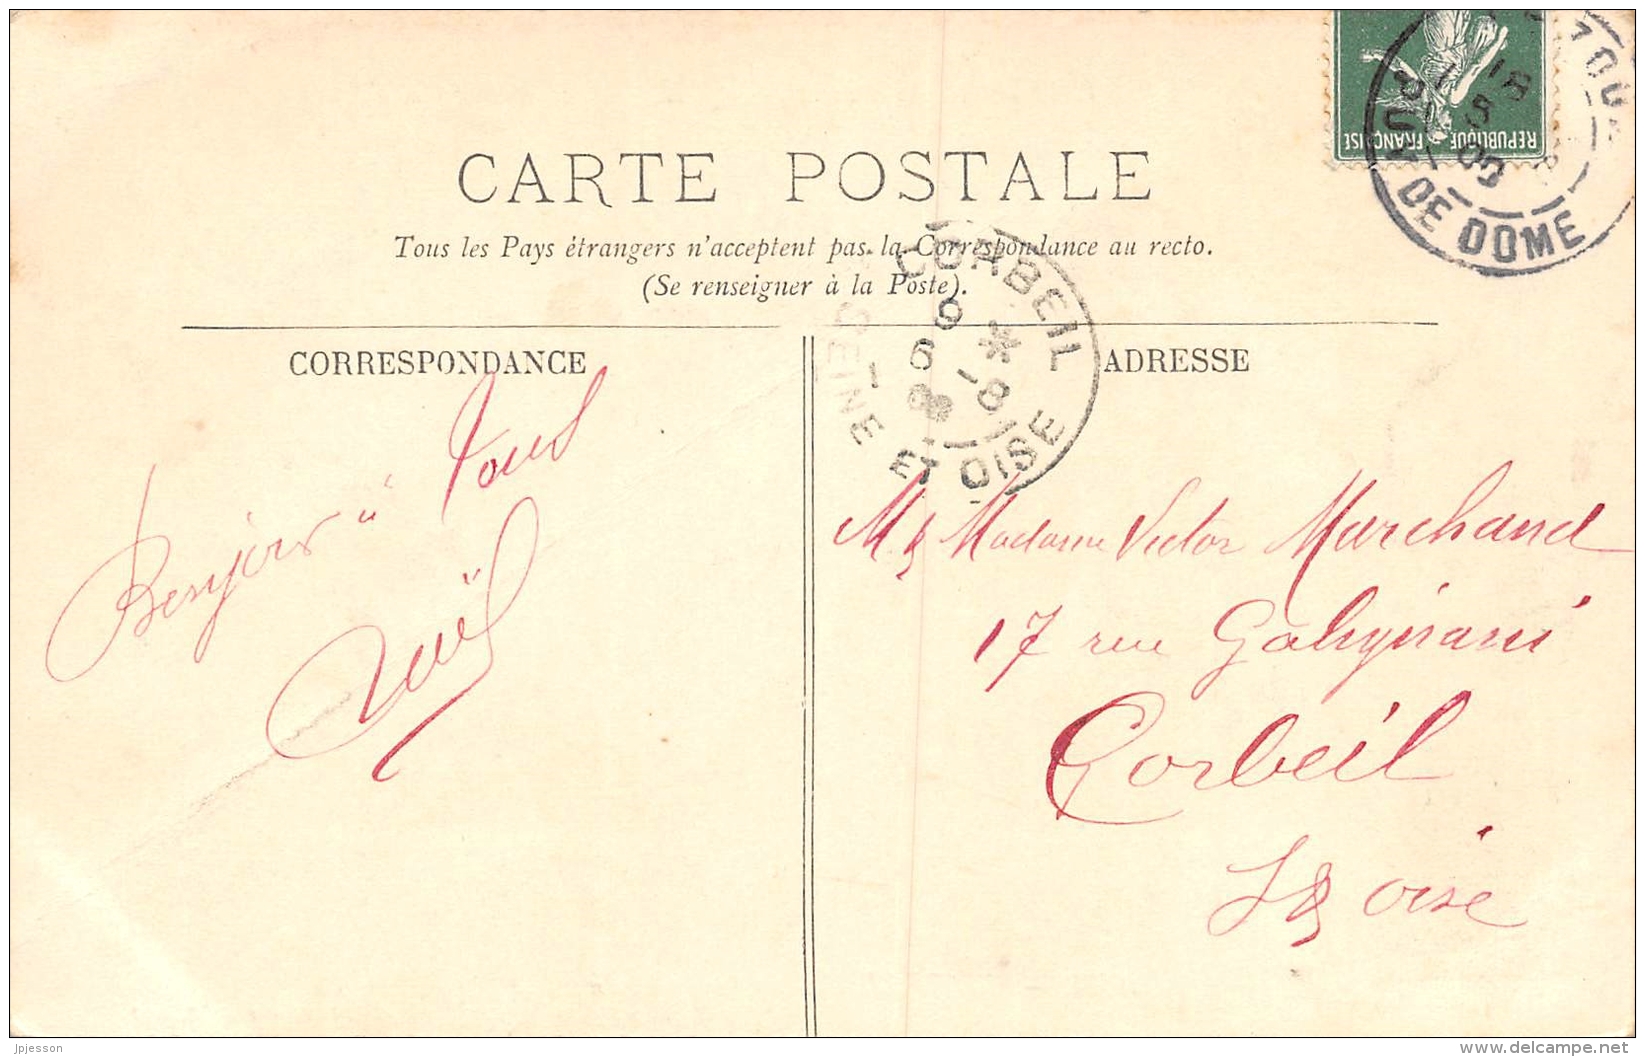 REPUBLIQUE FRANÇAISE
PUY DE DOME
CARTE POSTALE
Tous les Pays étrangers n'acceptent pas la Correspondance au recto.
(Se renseigner à la Poste).
CORBEIL
SEINE ET OISE
CORRESPONDANCE
ADRESSE
Bonjour à tous
Noël
M & Madame Victor Marchand
17 rue Galignani
Corbeil
S & Oise
jpjesson
delcampe.net